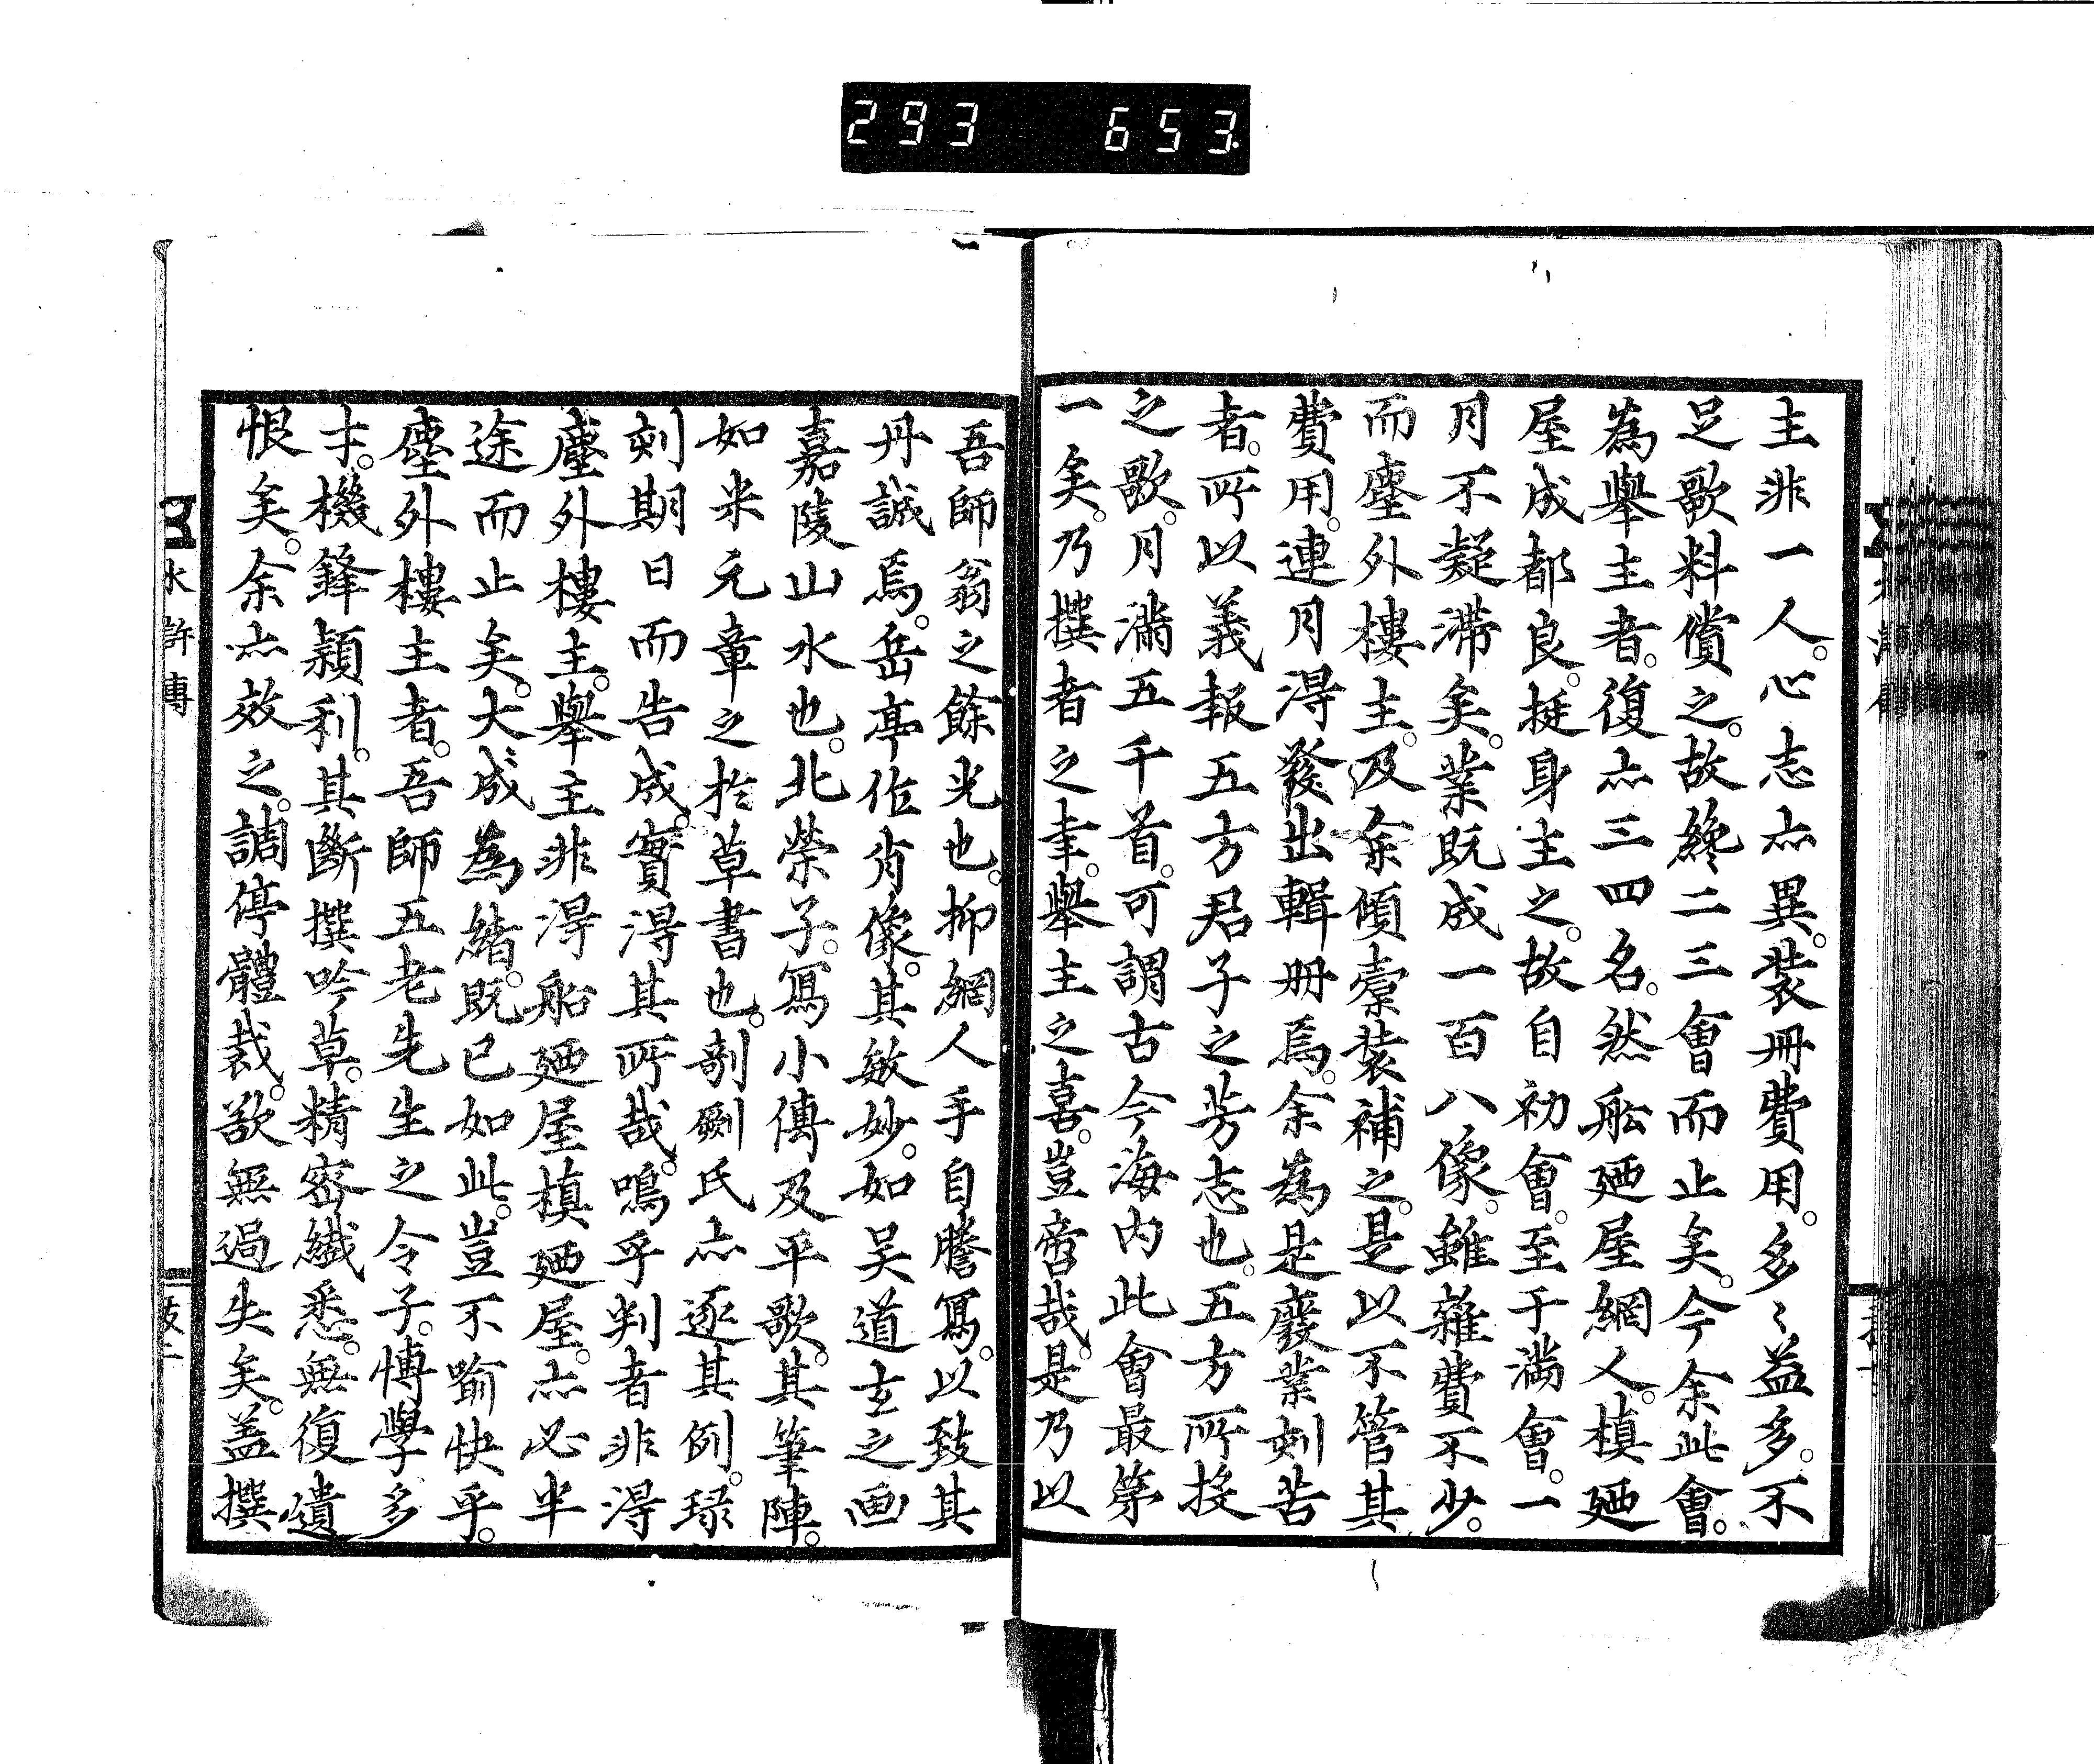 293 653
主非一人。心志亦異。裝冊費用。多〻益多。不
足歌料償之。故纔二三會而止矣。今余此會。
為擧主者。復亦三四名。然舩廼屋網人。槙廼
屋成都良。挺身主之。故自初會。至于満會。一
月不凝滞矣。業既成一百八像。雖雜費不少。
而塵外樓主。及余傾橐装補之。是以不管其
費用。連月淂發出輯冊焉。余為是廢業刻苦
者。所以義報五方君子之芳志也。五方所投
之歌。月滿五千首。可謂古今海内此會最第
一矣。乃撰者之幸。擧主之喜。豈啻哉。是乃以
吾師翁之餘光也。抑網人手自謄寫。以致其
丹誠焉。岳亭作肖像。其敏妙。如吴道玄之画
嘉陵山水也。北榮子。寫小傳及平歌。其筆陣。
如米元章之於草書也。剞劂氏亦逐其例。琭
刻期日而告成。實淂其所哉。嗚乎判者非淂
塵外樓主。擧主非淂船廼屋槙廼屋。亦必半
途而止矣。大成為緒。既已如此。豈不喻快乎。
塵外樓主者。吾師五老先生之令子。愽學多
才。機鋒潁利。其斷撰吟草。精密纎悉。無復遺
恨矣。余亦效之。調停體裁。欲無過失矣。盖撰
水許傳
跋二